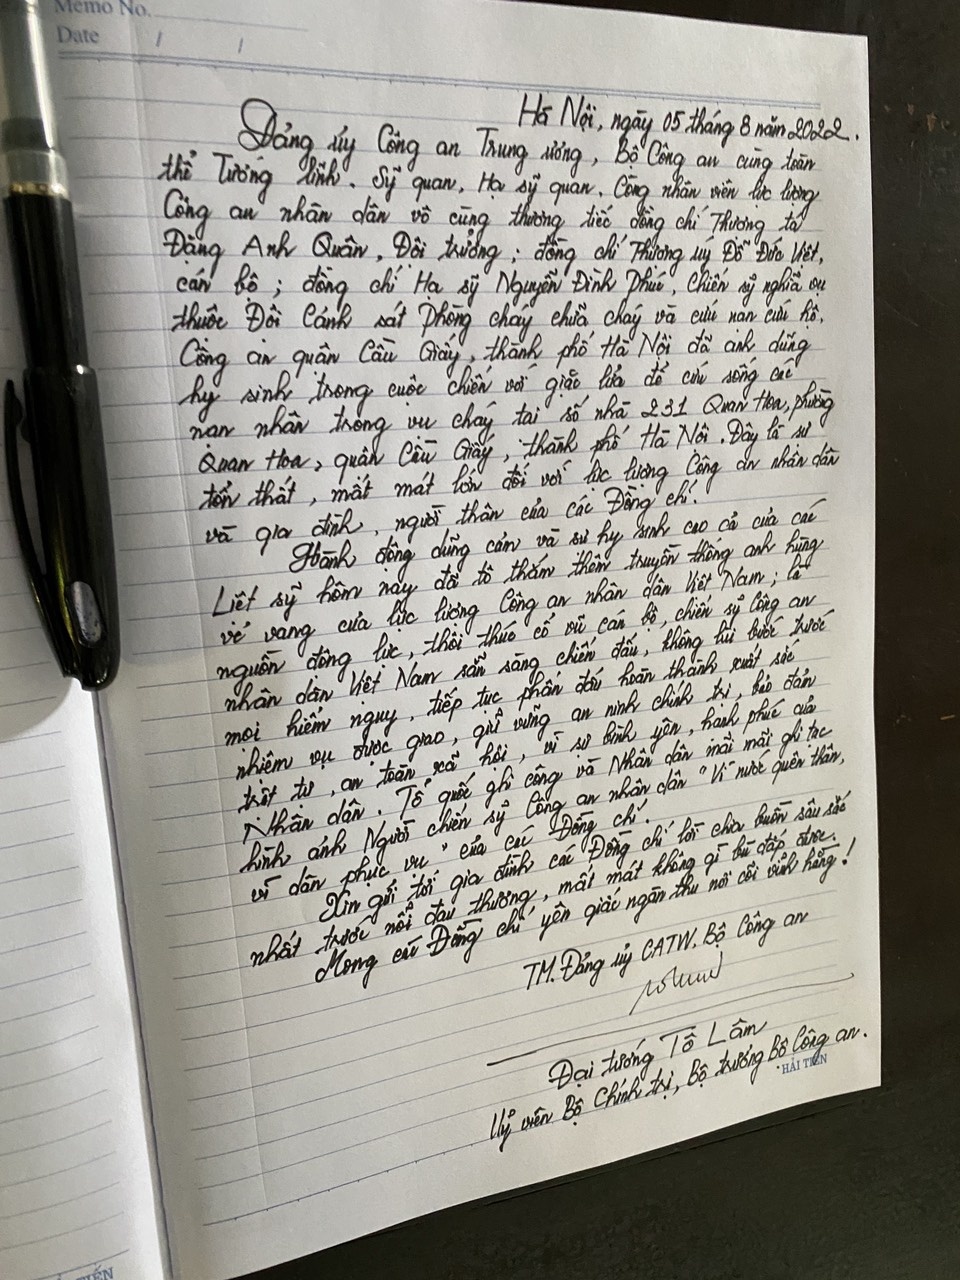 Memo No.
Date / /
Hà Nội, ngày 05 tháng 8 năm 2022.
Đảng ủy Công an Trung ương, Bộ Công an cùng toàn
thể Tướng lĩnh. Sỹ quan, Hạ sỹ quan, Công nhân viên lực lượng
Công an nhân dân vô cùng thương tiếc đồng chí Thượng tá
Đặng Anh Quân, Đội trưởng; đồng chí Thượng uý Đỗ Đức Việt,
cán bộ; đồng chí Hạ sỹ Nguyễn Đình Phúc, chiến sỹ nghĩa vụ
thuộc Đội Cảnh sát Phòng cháy chữa cháy và cứu nạn cứu hộ,
Công an quận Cầu Giấy, thành phố Hà Nội đã anh dũng
hy sinh trong cuộc chiến với giặc lửa để cứu sống các
nạn nhân trong vụ cháy tại số nhà 231 Quan Hoa, phường
Quan Hoa, quận Cầu Giấy, thành phố Hà Nội. Đây là sự
tổn thất, mất mát lớn đối với lực lượng Công an nhân dân
và gia đình, người thân của các Đồng chí.
Hành động dũng cảm và sự hy sinh cao cả của các
Liệt sỹ hôm nay đã tô thắm thêm truyền thống anh hùng
vẻ vang của lực lượng Công an nhân dân Việt Nam; là
nguồn động lực, thôi thúc cổ vũ cán bộ, chiến sỹ Công an
nhân dân Việt Nam sẵn sàng chiến đấu, không lùi bước trước
mọi hiểm nguy, tiếp tục phấn đấu hoàn thành xuất sắc
nhiệm vụ được giao, giữ vững an ninh chính trị, bảo đảm
trật tự, an toàn xã hội, vì sự bình yên, hạnh phúc của
Nhân dân. Tổ quốc ghi công và Nhân dân mãi mãi ghi tạc
hình ảnh Người chiến sỹ Công an nhân dân "Vì nước quên thân,
vì dân phục vụ" của các Đồng chí.
Xin gửi tới gia đình các Đồng chí lời chia buồn sâu sắc
nhất trước nỗi đau thương, mất mát không gì bù đắp được.
Mong các Đồng chí yên giấc ngàn thu nơi cõi vĩnh hằng!
TM. Đảng uỷ CATW, Bộ Công an
Đại tướng Tô Lâm
Uỷ viên Bộ Chính trị, Bộ trưởng Bộ Công an.
HẢI TIẾN